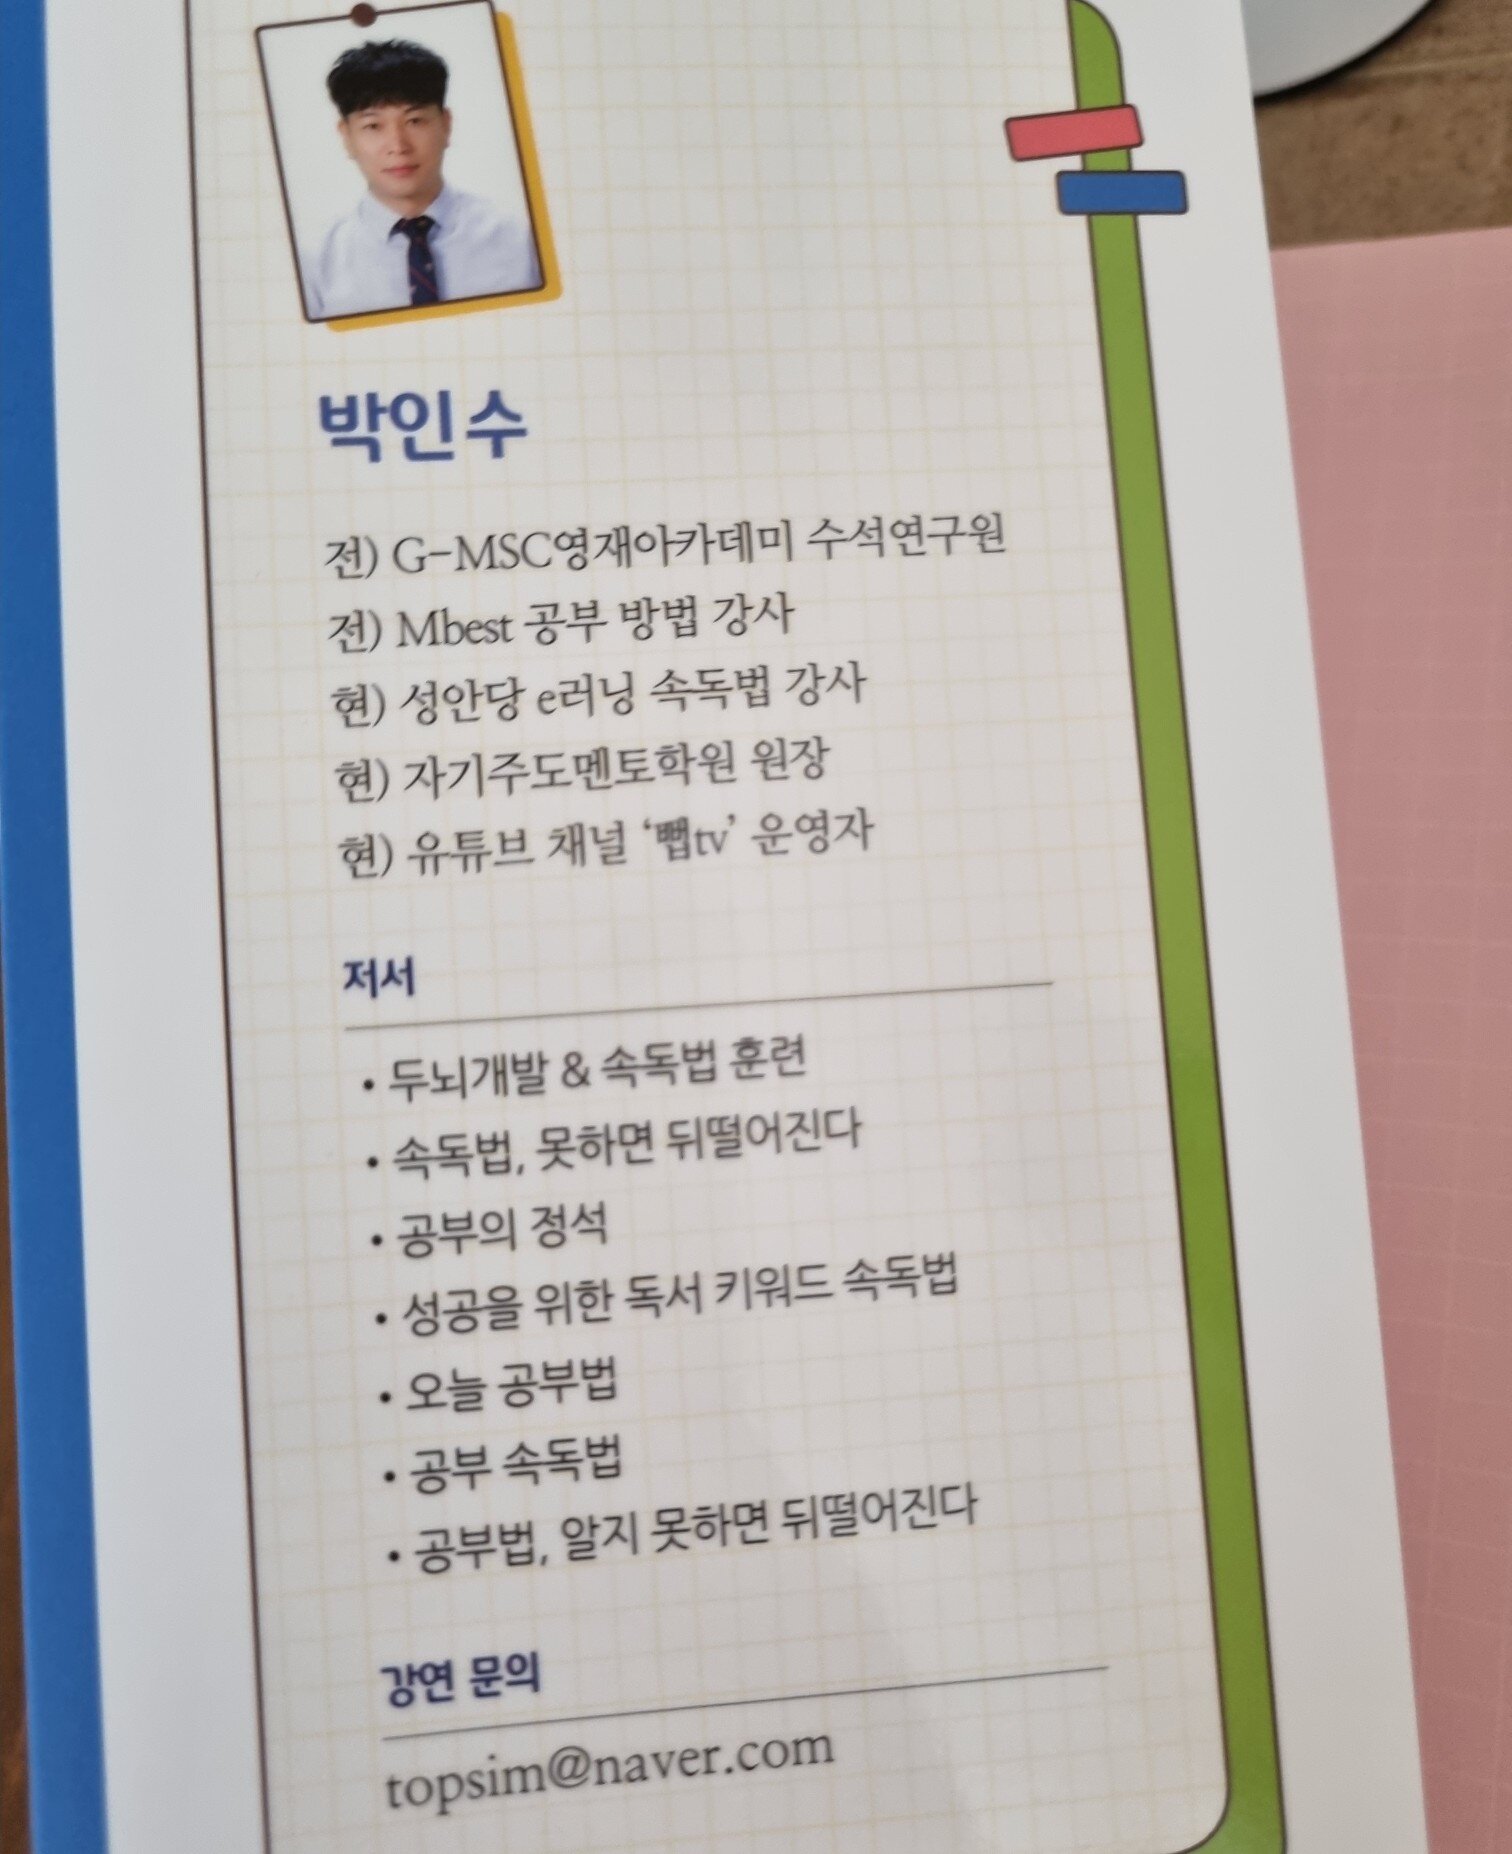 박인수
전) G-MSC영재아카데미 수석연구원
전) Mbest 공부 방법 강사
현) 성안당 e러닝 속독법 강사
현) 자기주도멘토학원 원장
현) 유튜브 채널 ‘뺍tv’ 운영자
저서
• 두뇌개발 & 속독법 훈련
• 속독법, 못하면 뒤떨어진다
• 공부의 정석
• 성공을 위한 독서 키워드 속독법
• 오늘 공부법
• 공부 속독법
• 공부법, 알지 못하면 뒤떨어진다
강연 문의
topsim@naver.com